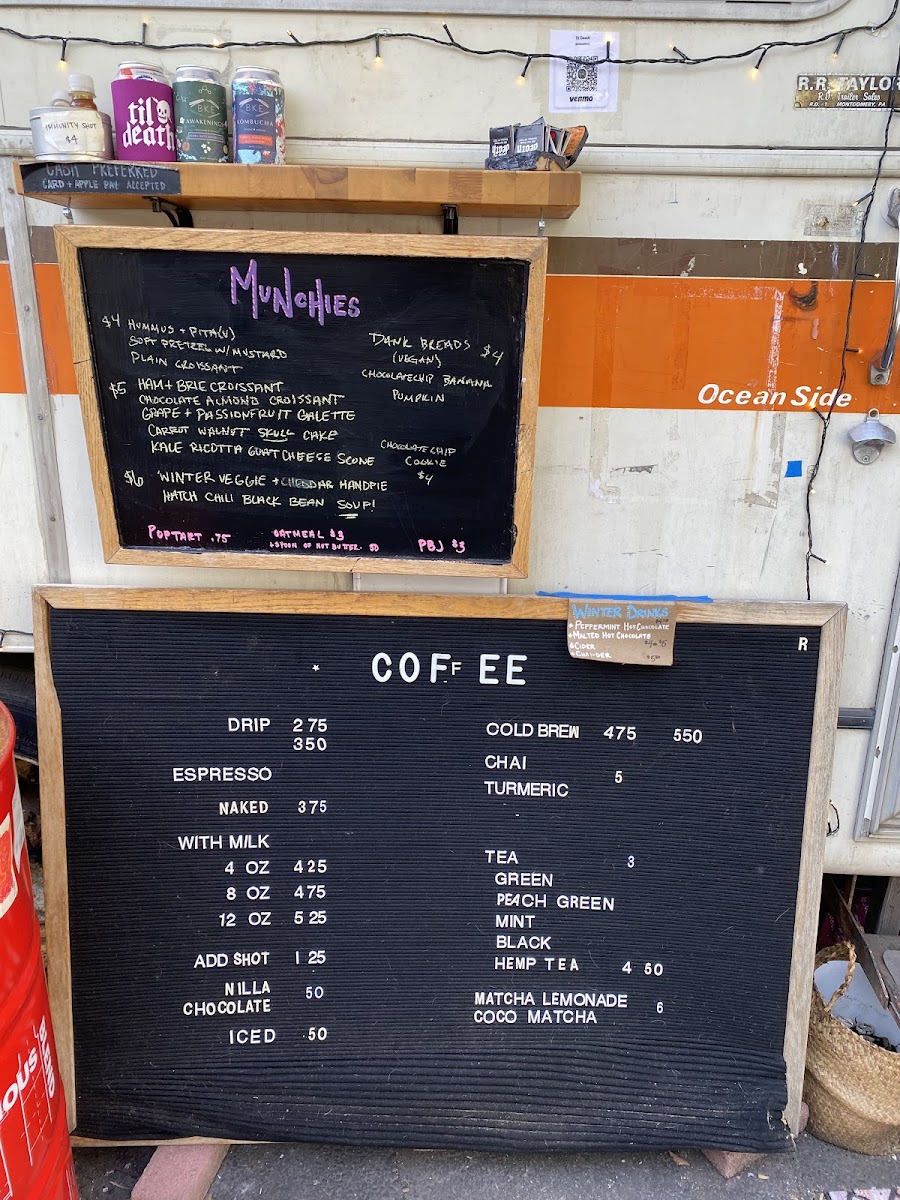 Til Death
venmo
R.R. TAYLOR
R.V. Trailer Sales
R.D. -1 MONTGOMERY, PA
IMMUNITY SHOT
$4
til
death
BKE
AWAKENING
BKE
KOMBUCHA
CASH PREFERRED
CARD + APPLE PAY ACCEPTED
MUNCHIES
$4 HUMMUS + PITA(V)
SOFT PRETZEL W/ MUSTARD
PLAIN CROISSANT
$5 HAM + BRIE CROISSANT
CHOCOLATE ALMOND CROISSANT
GRAPE + PASSIONFRUIT GALETTE
CARROT WALNUT SKULL CAKE
KALE RICOTTA GOAT CHEESE SCONE
$6 WINTER VEGGIE + CHEDDAR HANDPIE
HATCH CHILI BLACK BEAN SOUP!
DANK BREADS $4
(VEGAN)
CHOCOLATECHIP BANANA
PUMPKIN
CHOCOLATE CHIP
COOKIE
$4
POPTART .75
OATMEAL $3
+ SPOON OF NUT BUTTER .50
PBJ $3
Ocean Side
WINTER DRINKS
PEPPERMINT HOT CHOCOLATE
MALTED HOT CHOCOLATE
CIDER
CHAI-DER
R
COFFEE
DRIP 2 75
3 50
ESPRESSO
NAKED 3 75
WITH MILK
4 OZ 4 25
8 OZ 4 75
12 OZ 5 25
ADD SHOT 1 25
NILLA
CHOCOLATE 50
ICED .50
COLD BREW 4 75 5 50
CHAI
5
TURMERIC
TEA 3
GREEN
PEACH GREEN
MINT
BLACK
HEMP TEA 4 50
MATCHA LEMONADE 6
COCO MATCHA